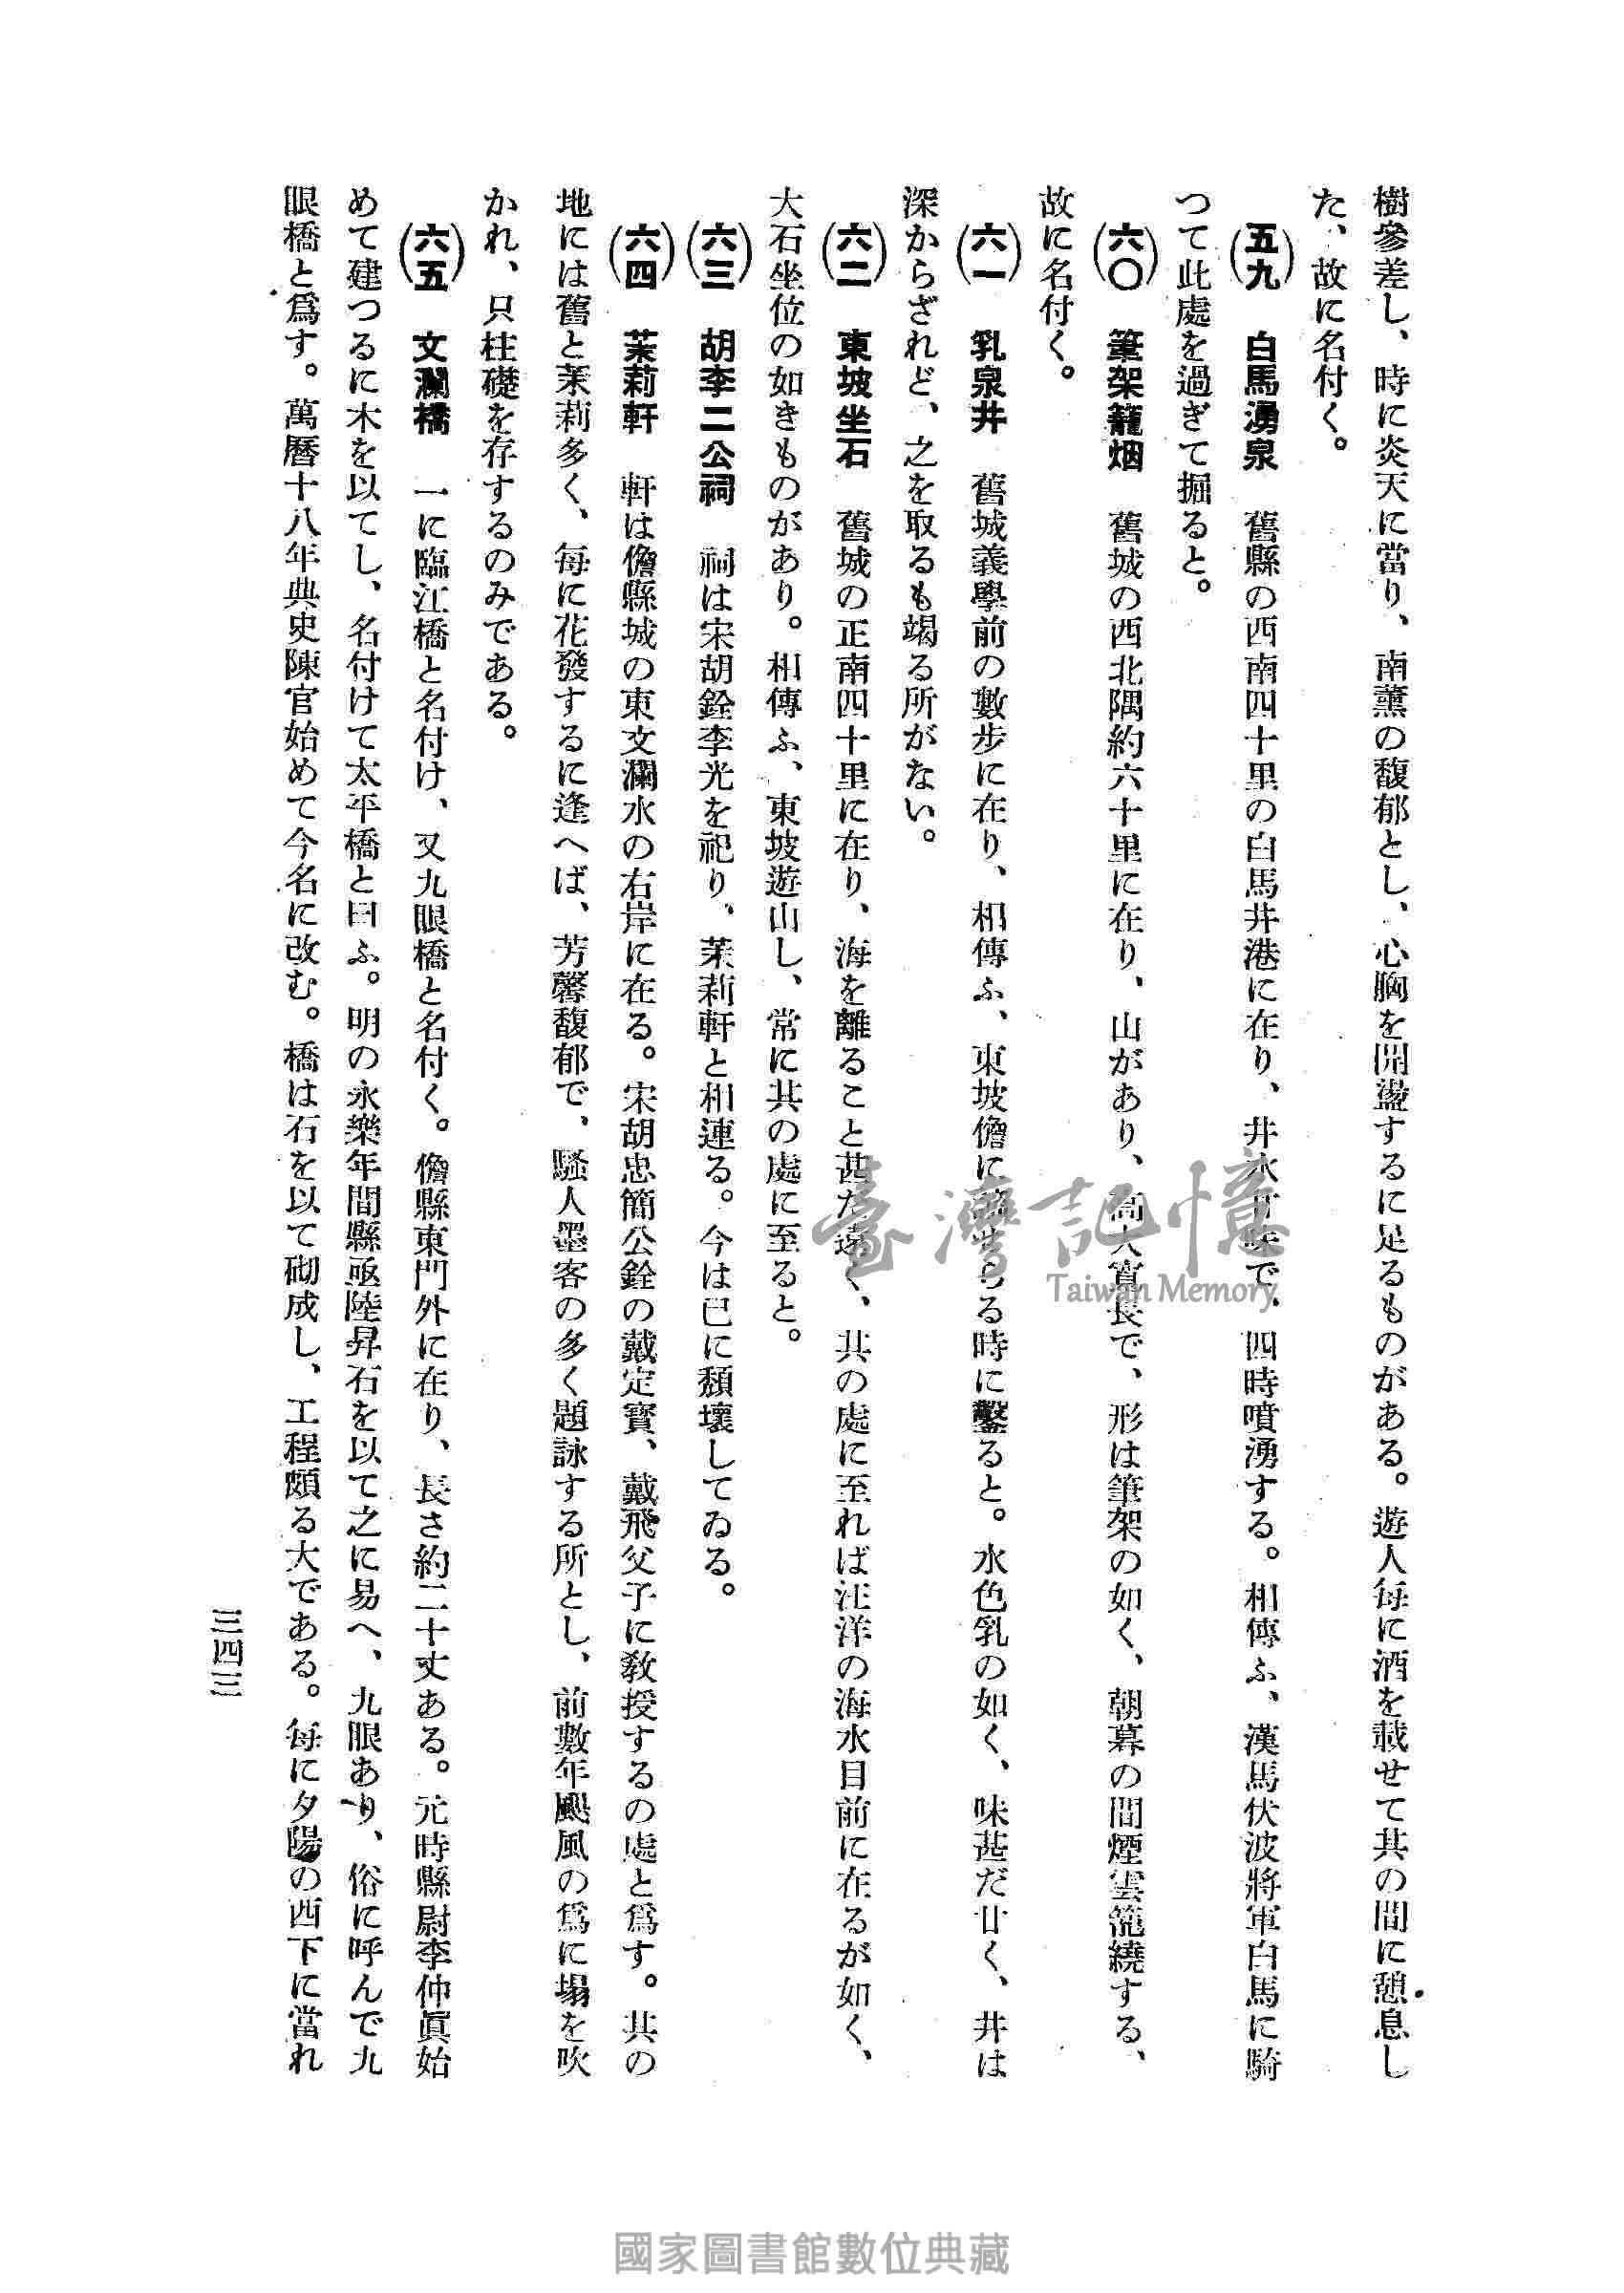 樹參差し、時に炎天に當り、南薰の馥郁とし、心胸を開盪するに足るものがある。遊人每に酒を載せて其の間に憩息し
た、故に名付く。
(五九) 白馬湧泉 舊縣の西南四十里の白馬井港に在り、井水甘味で、四時噴湧する。相傳ふ、漢馬伏波將軍白馬に騎
つて此處を過ぎて掘ると。
(六〇) 筆架籠烟 舊城の西北隅約六十里に在り、山があり、高大寬長で、形は筆架の如く、朝暮の間煙雲籠繞する、
故に名付く。
(六一) 乳泉井 舊城義學前の數步に在り、相傳ふ、東坡儋に謫せらる時に鑿ると。水色乳の如く、味甚だ甘く、井は
深からざれど、之を取るも竭る所がない。
(六二) 東坡坐石 舊城の正南四十里に在り、海を離ること甚だ遠く、其の處に至れば汪洋の海水目前に在るが如く、
大石坐位の如きものがあり。相傳ふ、東坡遊山し、常に其の處に至ると。
(六三) 胡李二公祠 祠は宋胡銓李光を祀り、茉莉軒と相連る。今は已に頽壞してゐる。
(六四) 茉莉軒 軒は儋縣城の東文瀾水の右岸に在る。宋胡忠簡公銓の戴定實、戴飛父子に敎授するの處と爲す。其の
地には舊と茉莉多く、每に花發するに逢へば、芳馨馥郁で、騷人墨客の多く題詠する所とし、前數年颶風の爲に塌を吹
かれ、只柱礎を存するのみである。
(六五) 文瀾橋 一に臨江橋と名付け、又九眼橋と名付く。儋縣東門外に在り、長さ約二十丈ある。元時縣尉李仲眞始
めて建つるに木を以てし、名付けて太平橋と曰ふ。明の永樂年間縣亟陸昇石を以て之に易へ、九眼あり、俗に呼んで九
眼橋と爲す。萬曆十八年典史陳官始めて今名に改む。橋は石を以て砌成し、工程頗る大である。每に夕陽の西下に當れ
三四三
臺灣記憶
Taiwan Memory
國家圖書館數位典藏